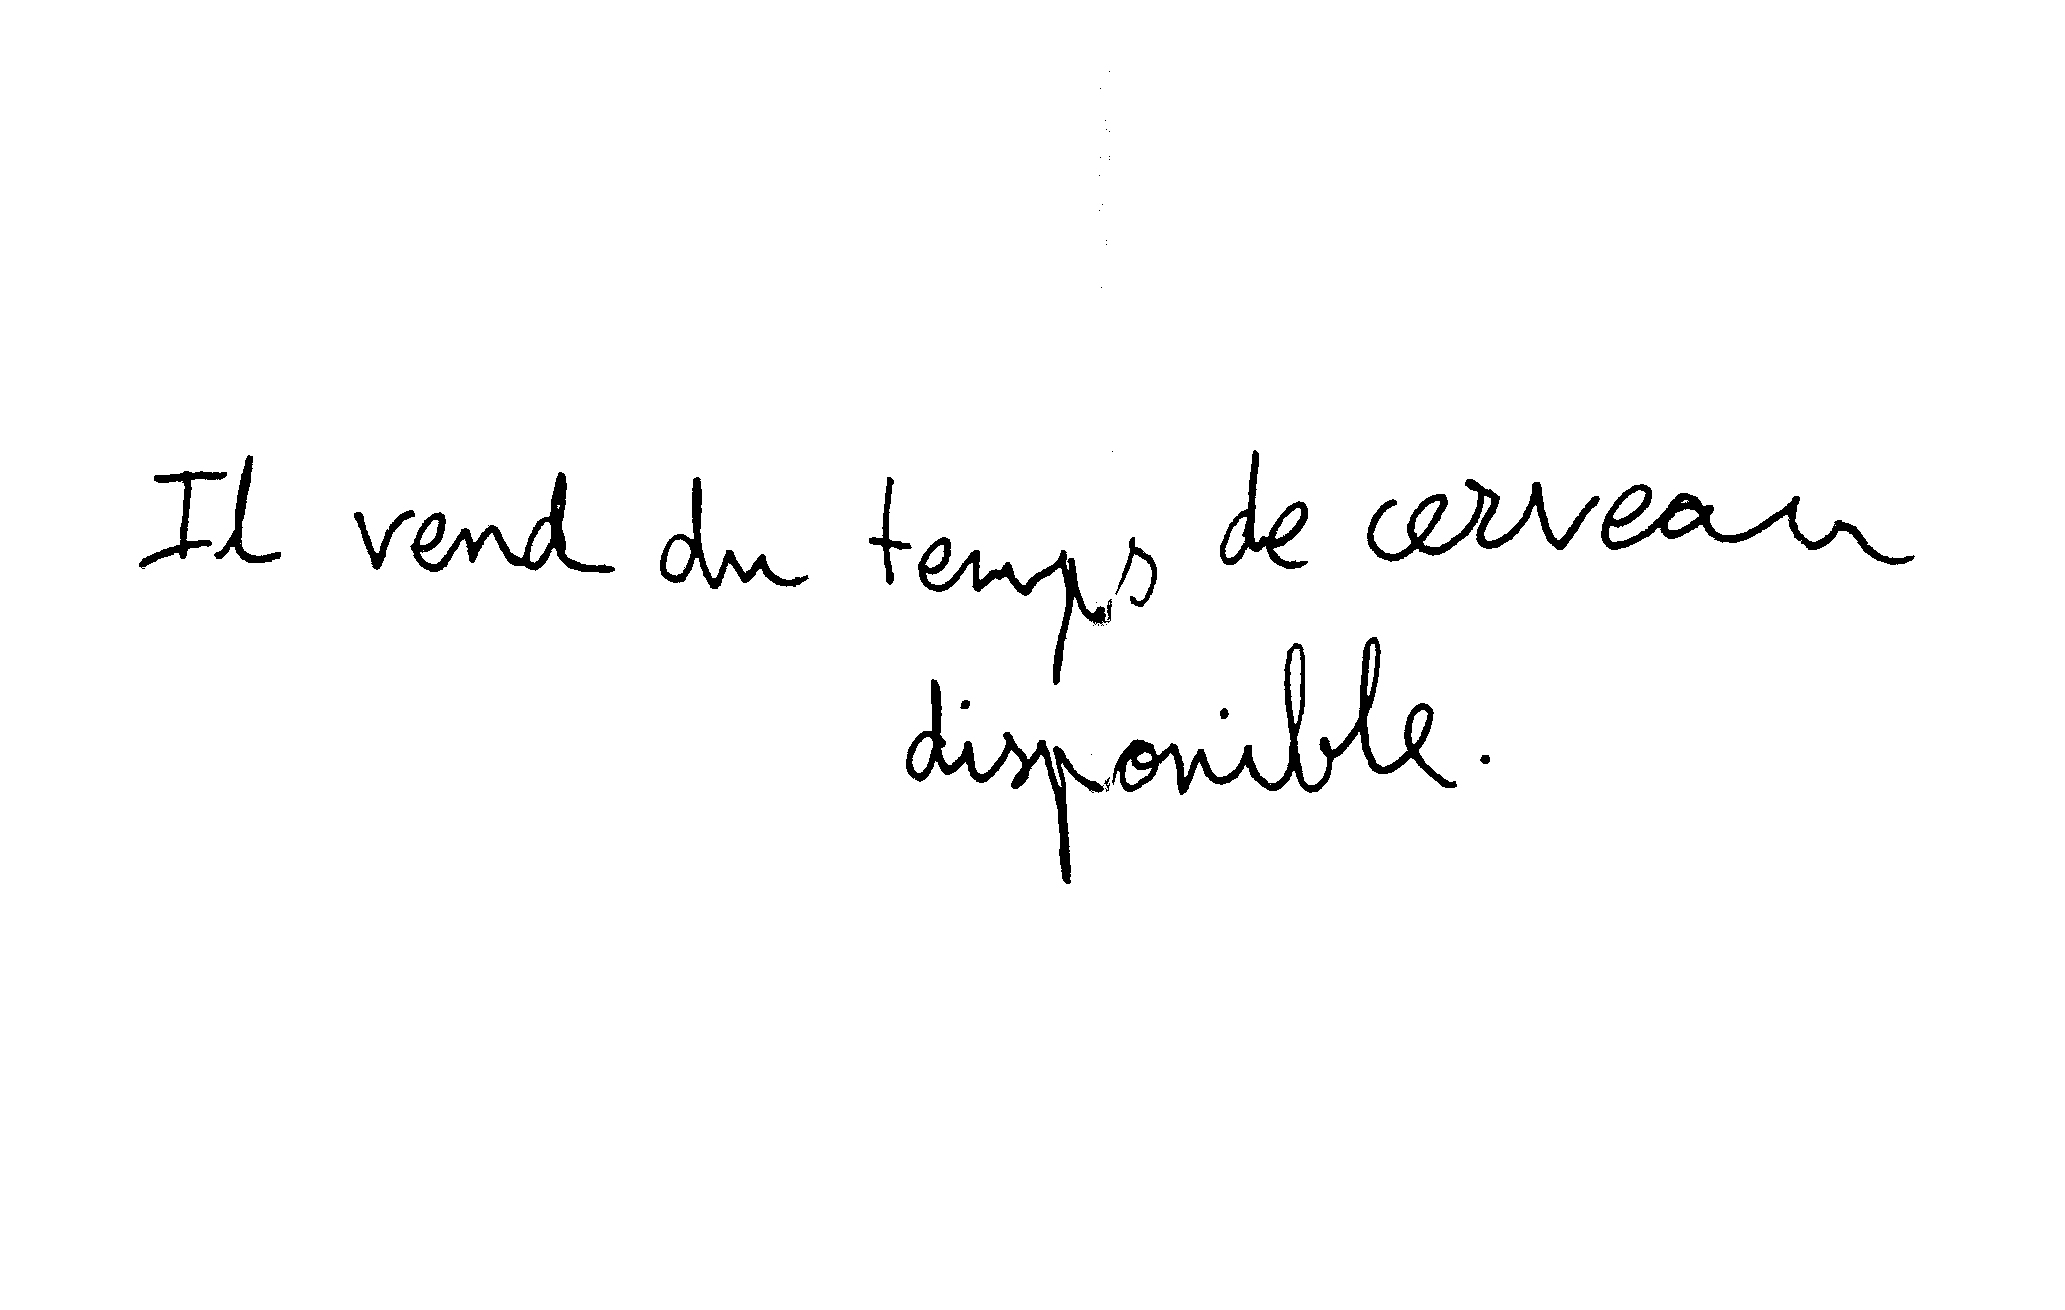 Il vend du temps de cerveau
disponible.